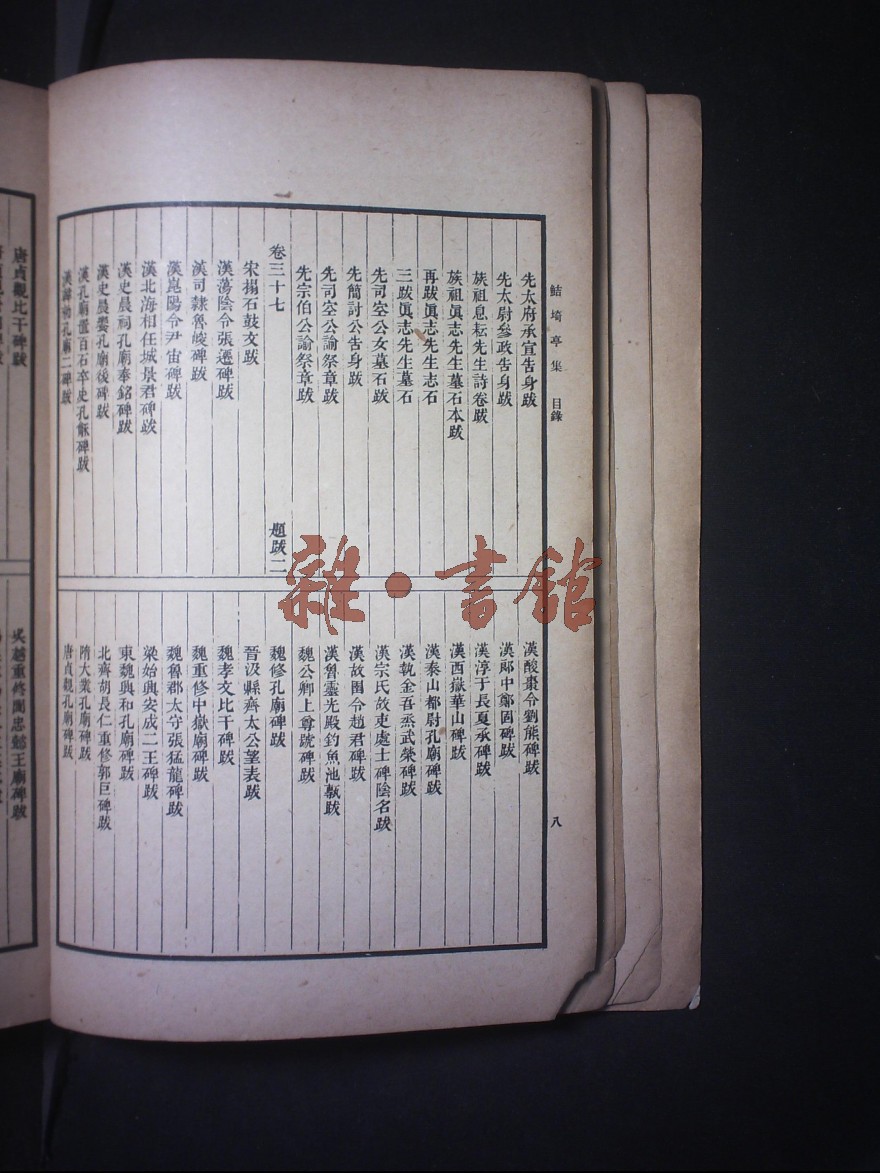 鮚埼亭集 目錄
八
先太府承宣告身跋
先太尉參政告身跋
族祖息耘先生詩卷跋
族祖眞志先生墓石本跋
再跋眞志先生志石
三跋眞志先生墓石
先司空公女墓石跋
先簡討公告身跋
先司空公諭祭章跋
先宗伯公諭祭章跋
卷三十七 題跋二
宋搨石鼓文跋
漢蕩陰令張遷碑跋
漢司隸魯峻碑跋
漢崑陽令尹宙碑跋
漢北海相任城景君碑跋
漢史晨祠孔廟奉銘碑跋
漢史晨饗孔廟後碑跋
漢孔廟置百石卒史孔龢碑跋
漢韓勅孔廟二碑跋
漢酸棗令劉熊碑跋
漢郎中鄭固碑跋
漢淳于長夏承碑跋
漢西嶽華山碑跋
漢泰山都尉孔廟碑跋
漢執金吾丞武榮碑跋
漢宗氏故吏處士碑陰名跋
漢故圉令趙君碑跋
漢魯靈光殿釣魚池甎跋
魏公卿上尊號碑跋
魏修孔廟碑跋
晉汲縣齊太公望表跋
魏孝文比干碑跋
魏重修中嶽廟碑跋
魏魯郡太守張猛龍碑跋
梁始興安成二王碑跋
東魏興和孔廟碑跋
北齊胡長仁重修郭巨碑跋
隋大業孔廟碑跋
唐貞觀孔廟碑跋
唐貞觀比干碑跋
吳越重修閩忠懿王廟碑跋
雜·書館